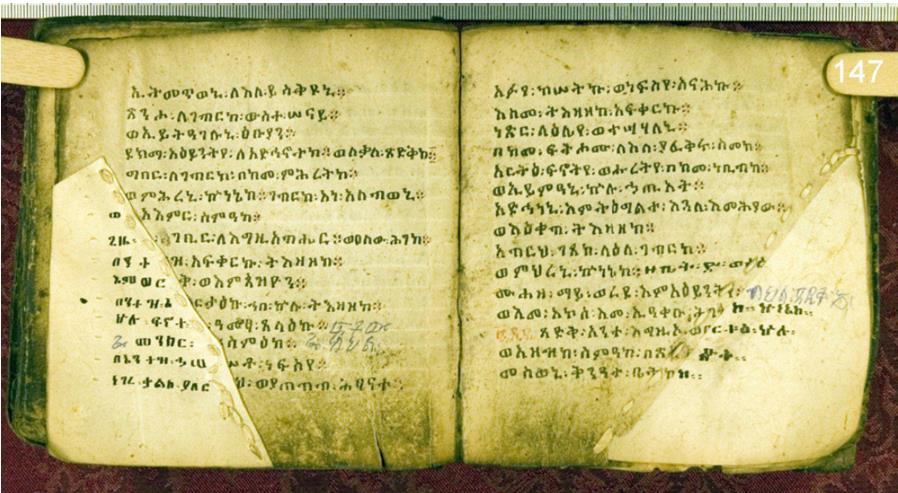 ኢትመጥወኒ፡ለእለ፡ይስቅዩኒ።
ጽንሖ፡ለገብርከ፡ውስተ፡ሠናይ።
ወኢይትዓገሉኒ፡ዕቡያን።
ደክማ፡አዕይንትየ፡ለአድኅኖትከ። ወለቃለ፡ጽድቅከ።
ግበር፡ለገብርከ፡በከመ፡ምሕረትከ።
ወምሕረኒ፡ኵነኔከ።ገብርከ፡አነ፡አለብወኒ።
ወአእምር፡ስምዓከ።
ጊዜ፡ገቢር፡ለእግዚአብሔር።ወሰዐሩ፡ሕገከ።
በእንተዝ፡አፍቀርኩ፡ትእዛዘከ።
እምወርቅ፡ወእምጳዝዮን።
በእንተዝ፡ኀበ፡ኵሉ፡ትእዛዝከ።
ኵሎ፡ፍኖተ፡ዓመፃ፡ጸላዕኩ።
መንክር፡ስምዕከ።
በእንተዝ፡ኀሠሠቶ፡ነፍስየ።
ነገረ፡ቃልከ፡ያበርህ፡ወያጠብብ፡ሕፃናተ።
147
አፉየ፡ከሠትኩ፡ወነፍስየ፡አናሕኩ።
እስመ፡ትእዛዘከ፡አፍቀርኩ።
ነጽር፡ላዕሌየ፡ወተሣሃለኒ።
በከመ፡ፍትሖሙ፡ለእለ፡ያፈቅሩ፡ስመከ።
አርትዕ፡ፍኖትየ፡ወሑረትየ፡በከመ፡ነቢብከ።
ወኢይምዳኒ፡ኵሉ፡ኃጢአት።
አድኅነኒ፡እምትዕግልተ፡እጓለ፡እመሕያው።
ወእዕቀብ፡ትእዛዘከ።
አብርህ፡ገጸከ፡ላዕለ፡ገብርከ።
ወምህረኒ፡ኵነኔከ።
ሙሓዘ፡ማይ፡ወረደ፡እምአዕይንትየ።
ወእመ፡አኮሰ፡
ጻድቅ፡አንተ፡እግዚኦ፡ወርቱዕ፡ኵሉ፡
ወአዘዝከ፡ስምዓከ፡በጽድቅ።
መስወኒ፡ቅንዓተ፡ቤትከ።